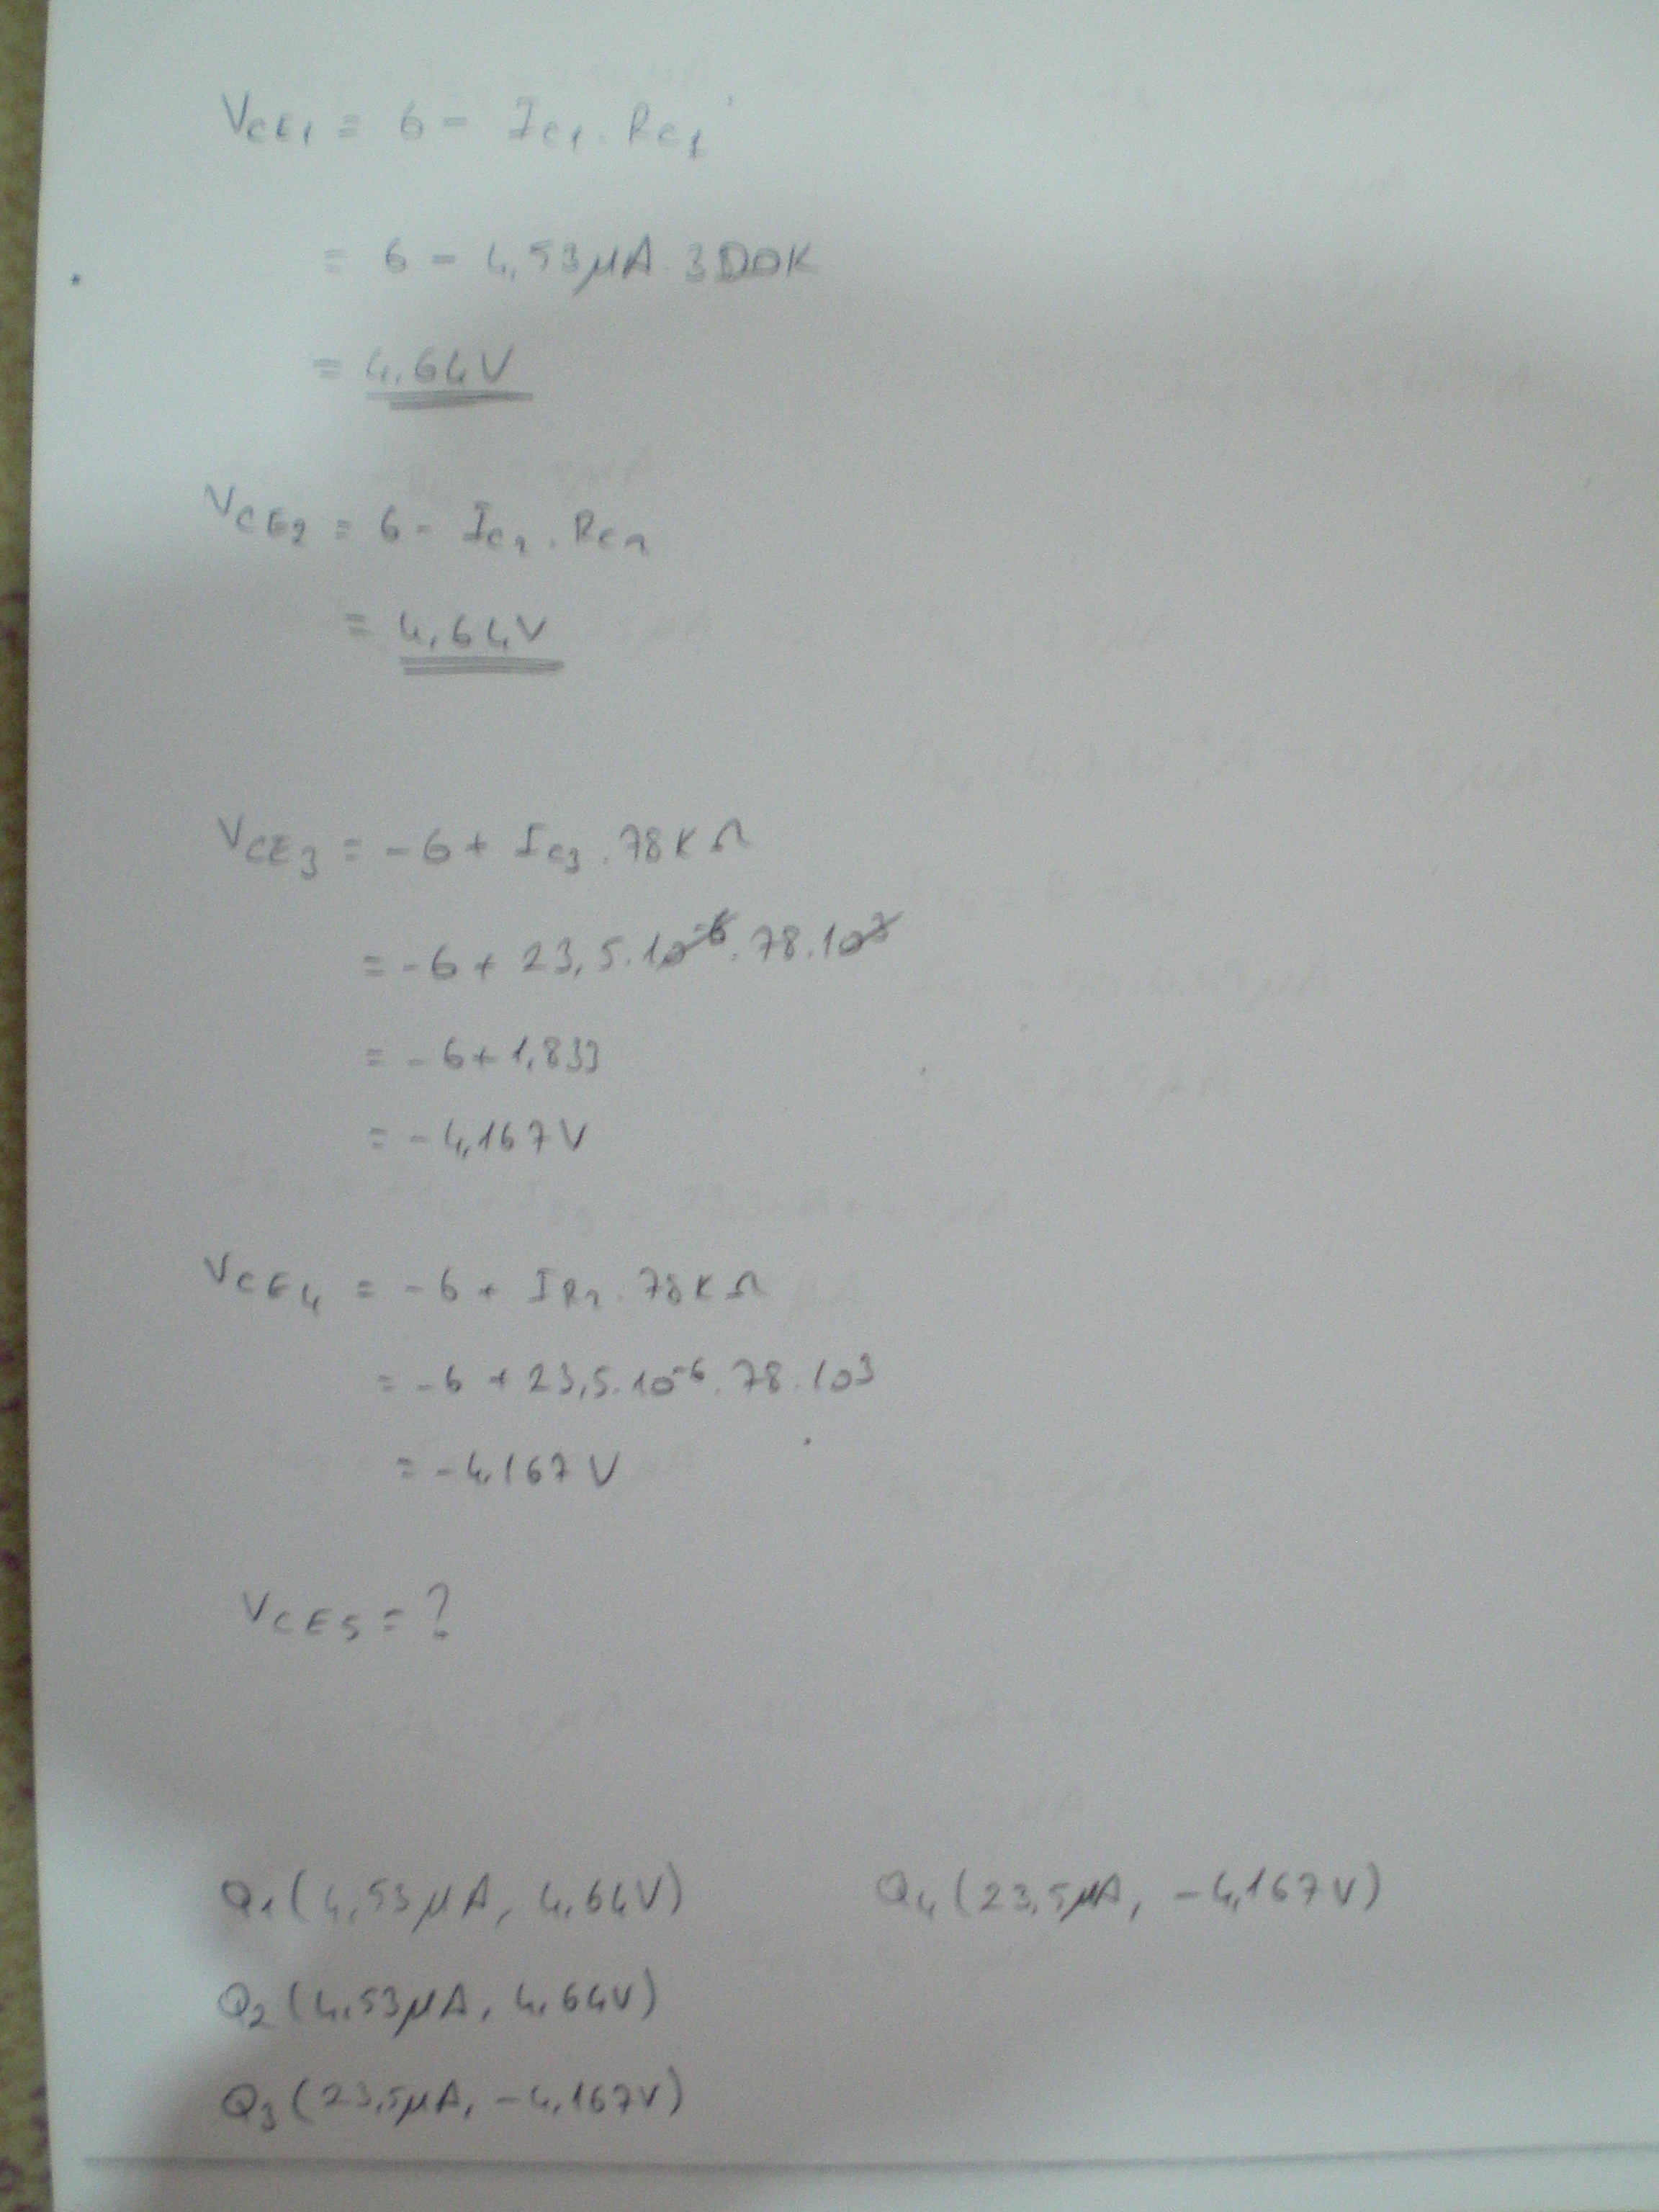 VCE1 = 6 - Ic1 . Rc1
= 6 - 4,53μA . 300K
= 4,64V
VCE2 = 6 - Ic2 . Rc2
= 4,64V
VCE3 = -6 + Ic3 . 78KΩ
= -6 + 23,5.10^-6 . 78.10^3
= -6 + 1,833
= -4,167V
VCE4 = -6 + IR2 . 78KΩ
= -6 + 23,5.10^-6 . 78.10^3
= -4,167V
VCE5 = ?
Q1 (4,53μA, 4,64V) Q4 (23,5μA, -4,167V)
Q2 (4,53μA, 4,64V)
Q3 (23,5μA, -4,167V)